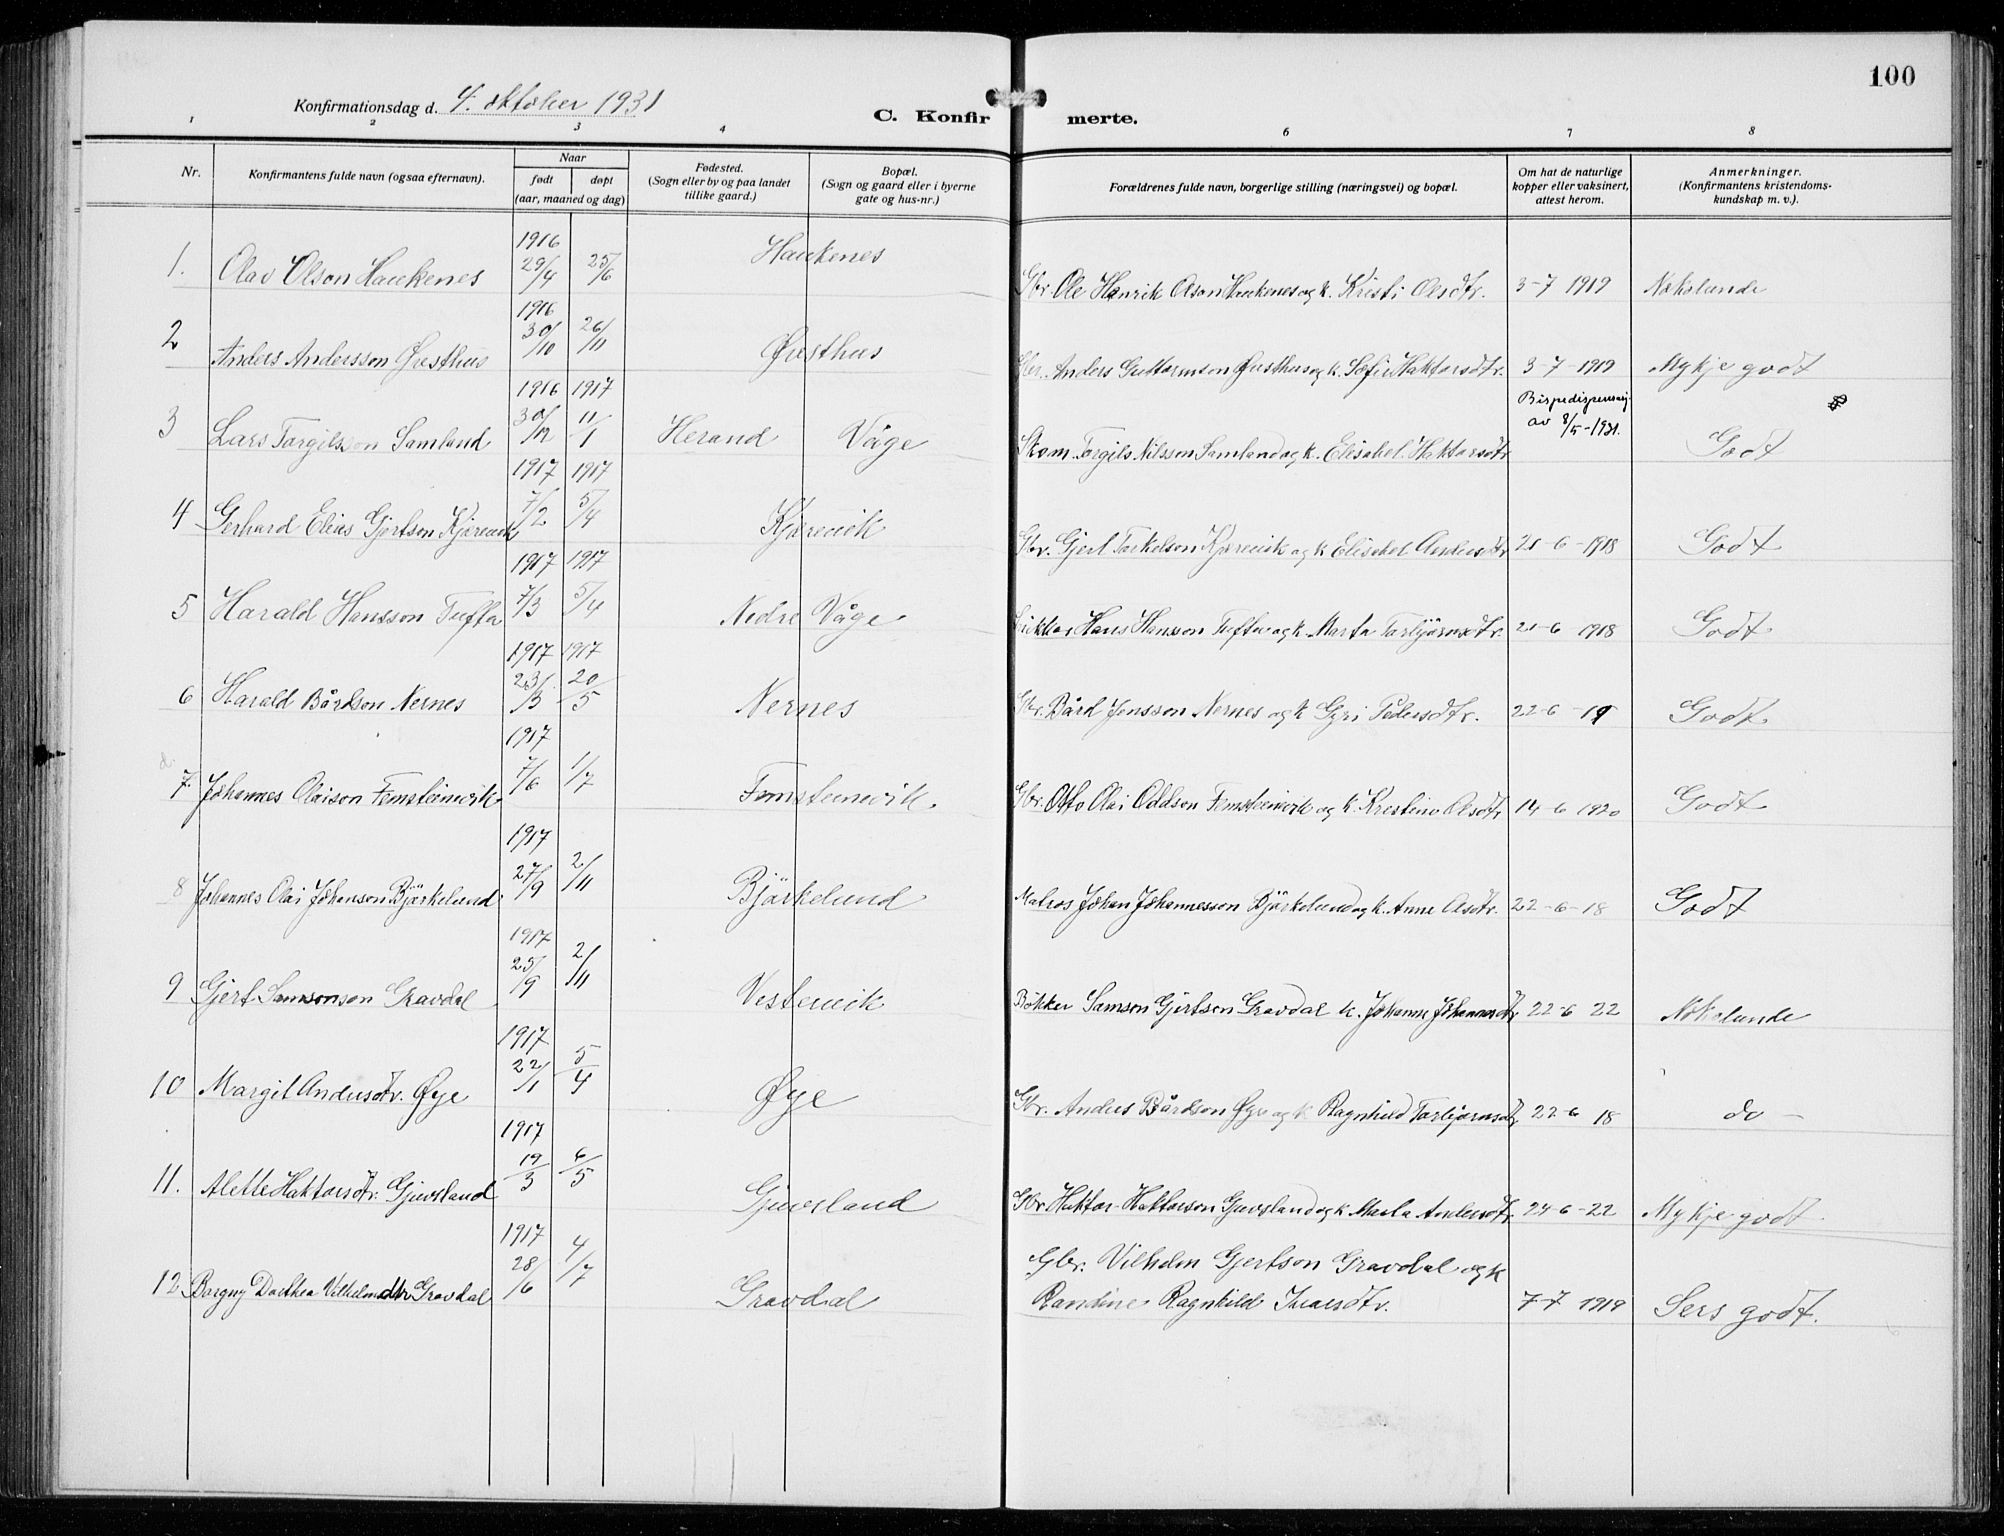 100
Konfirmationsdag d. 4. oktober 1931
C. Konfirmerte.
1 2 3 4 6 7 8
Nr.
Konfirmantens fulde navn (ogsaa efternavn).
Naar
født døpt
(aar, maaned og dag)
Fødested.
(Sogn eller by og paa landet
tillike gaard.)
Bopæl.
(Sogn og gaard eller i byerne
gate og hus-nr.)
Forældrenes fulde navn, borgerlige stilling (næringsvei) og bopæl.
Om hat de naturlige
kopper eller vaksinert,
attest herom.
Anmerkninger.
(Konfirmantens kristendoms-
kundskap m. v.).
1916
1. Olav Olson Haukenes 29/4 25/6 Haukenes Gbr. Ole Henrik Olson Haukenes og k. Kristi Olsdtr. 3-7 1919 Nokolunde
1916
2 Anders Andersson Øvsthus 30/10 26/11 Øvsthus Gbr. Anders Guttormson Øvsthus og k. Sofie Haktorsdtr. 3-7-1919 Mykje godt
1916 1917
Bispedispensasj.
av 8/5-1931.
3 Lars Torgilsson Samland 30/12 11/1 Herand Våge Skom. Torgils Nilsson Samland og k. Elisabet Haktorsdtr Godt
1917 1917
4 Gerhard Elias Gjertson Kjærevik 7/2 5/4 Kjærevik Gbr. Gjert Torkelson Kjærevik og k Elisabet Andersdtr 21-6-1918 Godt
1917 1917
5 Harald Hansson Tufta 7/3 5/4 Nedre Våge Hans Hansson Tufta og k. Marta Torbjørnsdtr. 21-6-1918 Godt
1917 1917
6 Harald Bårdson Nernes 23/3 20/5 Nernes Gbr. Bård Jonsson Nernes og k Gyri Pedersdtr. 22-6-19 Godt
1917
7. Johannes Olaison Femsteinevik 7/6 1/7 Femsteinevik. Gbr. Otto Olai Oddson Femsteinevik og k. Kristine Olsdtr 14-6 1920 Godt
1917
8 Johannes Olai Johanson Bjørkelund 27/9 2/11 Bjørkelund Matros Johan Johannesson Bjørkelund og k. Anne Olsdtr. 22-6-18 Godt
1917
9 Gjert Samsonson Gravdal 25/9 2/11 Vestervik Bøkker Samson Gjertson Gravdal k. Johanne Johannesdtr 22-6 22 Nokolunde
1917
10 Margit Andersdtr. Øye 22/1 5/4 Øye Gbr. Anders Bårdson Øye og k Ragnhild Torbjørnsdtr 22-6 18 do -
1917
11. Alette Haktorsdtr. Gjuvsland 19/3 6/5 Gjuvsland Gbr Haktor Haktorson Gjuvsland og k Marta Andersdtr 24-6-22 Mykje godt.
1917
Gbr. Vilhelm Gjertson Gravdal og k
12 Borgny Dorthea Vilhelmsdtr Gravdal 28/6 4/7 Gravdal Randine Ragnhild Ivarsdtr. 7-7 1919 Sers godt.